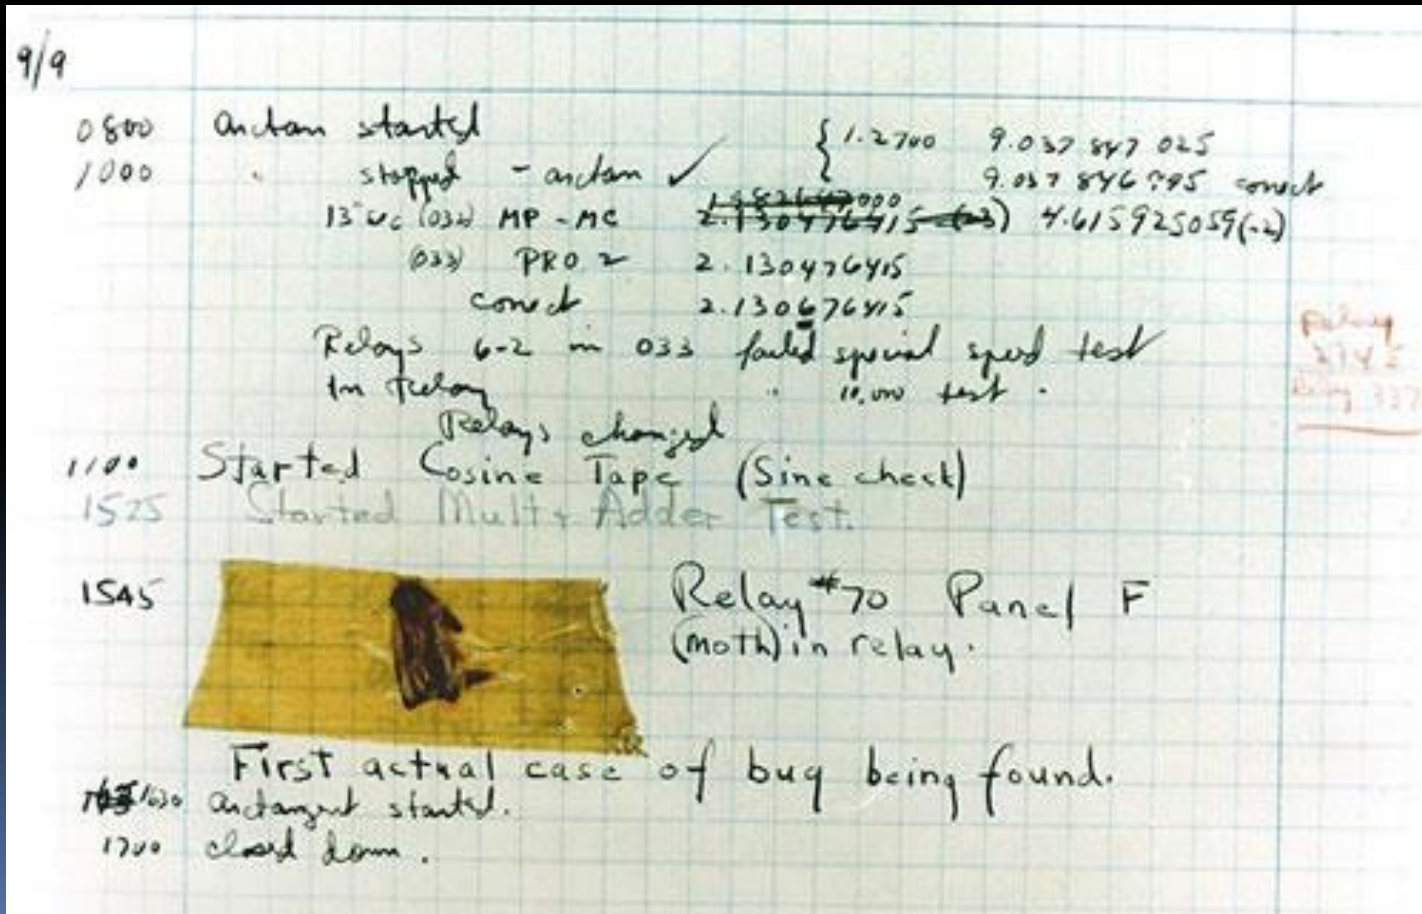 9/9
0800 arctan started { 1.2700 9.037 847 025
1000 " stopped - arctan ✓ 9.037 846 795 correct
13"uc (032) MP - MC 2.130476415 (-3) 4.615925059(-2)
(033) PRO 2 2.130476415
correct 2.130676415
Relays 6-2 in 033 failed special speed test
In relay " 10,000 test .
Relay
Relays changed
1100 Started Cosine Tape (Sine check)
1525 Started Mult + Adder Test.
1545 Relay #70 Panel F
(moth) in relay.
First actual case of bug being found.
1630 arctangent started.
1700 closed down.